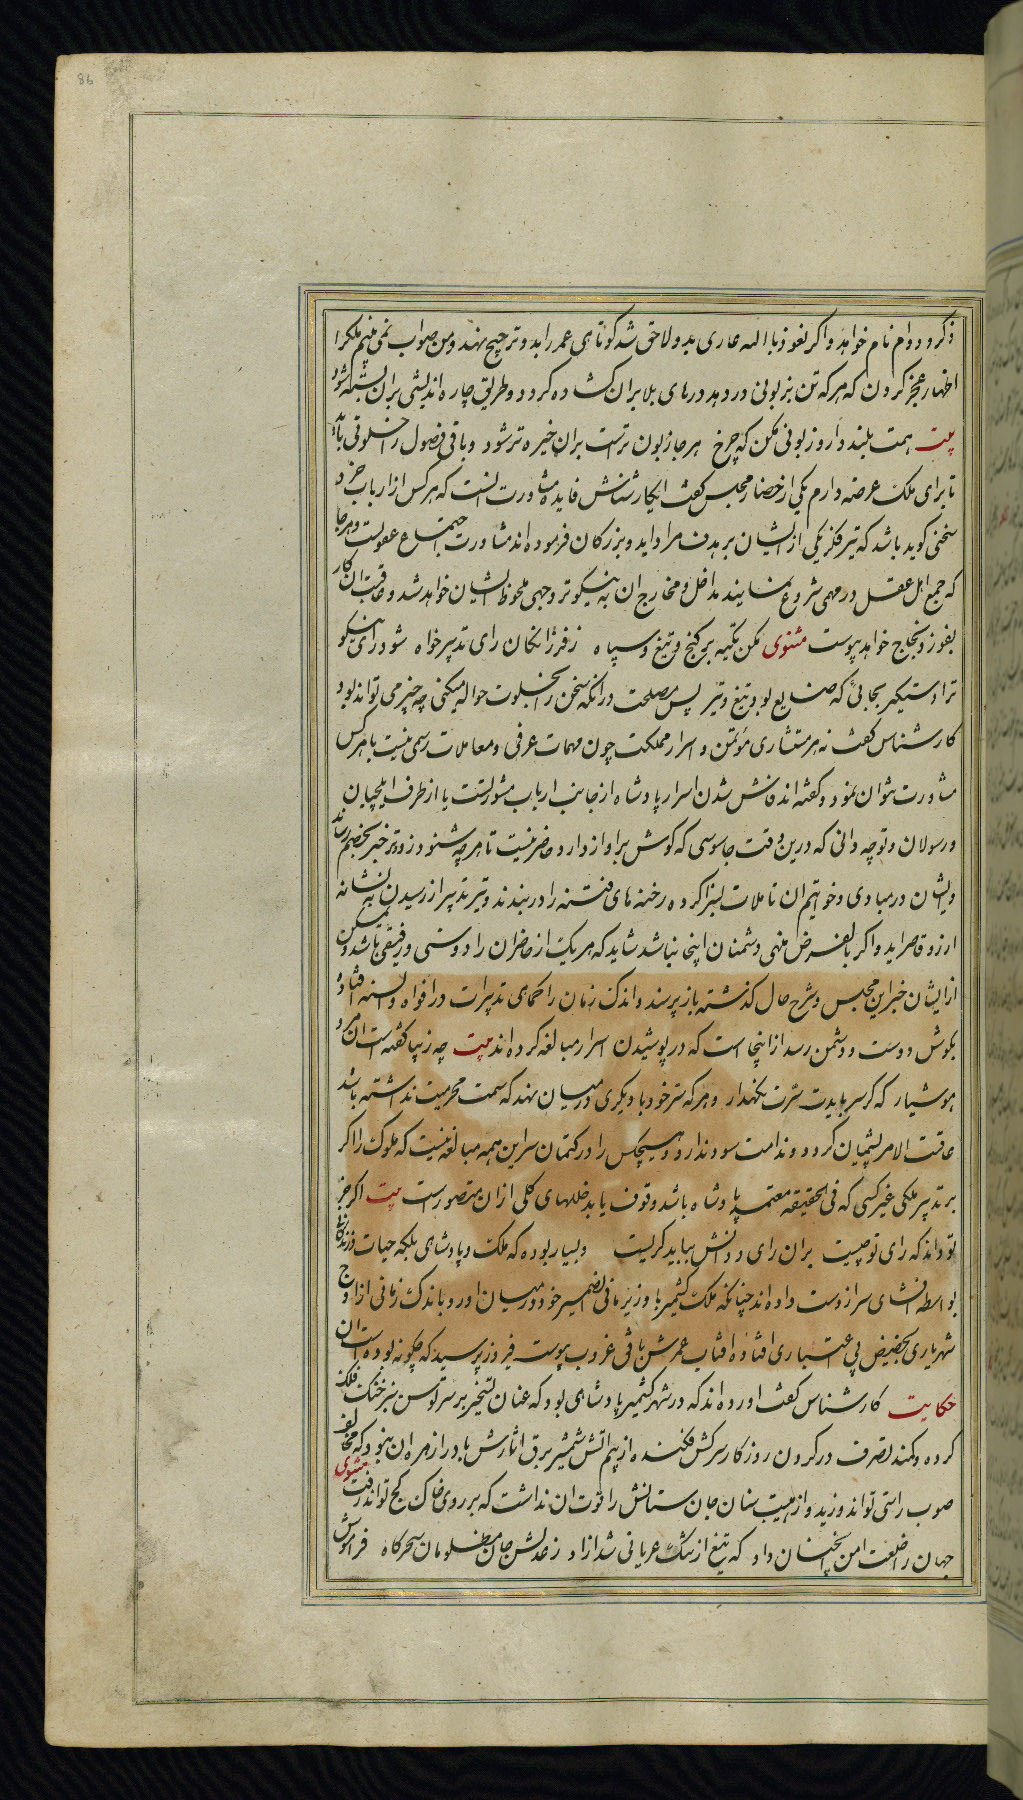 86
ذکر و دوام نام خواهد و اگر نعوذ بالله عاری بدو لاحق شد کوتاهی عمر را بدو ترجیح نهد و من صواب نمی بینم ملک را
اظهار عجز کردن که هرکه تن بزبونی دردهد درهای بلا بر ان کشاده کردد و طریق چاره اندیشی بران بسته شود
بیت همت بلند دار و زبونی مکن که چرخ هر جا زبون ترست بران خیره تر شود و باقی فصول را خلوتی باید
تا برای ملک عرضه دارم یکی از حضار مجلس کفت ایکارشناس فایده مشاورت انست که هرکس از ارباب خرد
سخنی کوید باشد که تیر فکر یکی از ایشان بر هدف مراد اید و بزرکان فرموده اند مشاورت اجتماع عقولست و هرجا
که جمع اهل عقل در مهمی شروع نمایند مداخل و مخارج ان به نیکوتر وجهی ملحوظ ایشان خواهد شد و عاقبت ان کار
بفوز و نجاح خواهد پیوست مثنوی مکن تکیه بر کنج و تیغ و سپاه ز فرزانکان رای و تدبیر خواه شود رای نیکو
ترا دستکیر بجائی که ضایع بود تیغ و تیر پس مصلحت درانکه سخن را بخلوت حواله میکنی چه چیز می تواند بود
کارشناس کفت نه هر مستشاری مؤتمن و اسرار مملکت چون مهمات عرفی و معاملات رسمی نیست با هر کس
مشاورت بتوان نمود و کفته اند فاش شدن اسرار پادشاه از جانب ارباب مشورتست یا از طرف ایلچیان
و رسولان و تو چه دانی که درین وقت جاسوسی که کوش بر اواز دارد حاضر نیست تا هرچه شنود زودتر خبر بخصم رساند
و ایشان در مبادی و خواتیم ان تاملات بسزا کرده رخنه های فتنه را دربندند و تیر تدبیر از رسیدن به نشانه
ارزو قاصر اید و اکر بالفرض منهی دشمنان اینجا نباشد شاید که هر یک از حاضران را دوستی و رفیقی باشد و ممکن
از ایشان خبر این مجلس و شرح حال کذشته باز پرسند و اندک زمان را حکمهای تدبیرات در افواه و السنه افتاده
بکوش دوست و دشمن رسد از اینجا است که در پوشیدن اسرار مبالغه کرده اند بیت چه زیبا کفته است ان مرد
هوشیار که کر سر بایدت سرت نکهدار و هرکه سر خود با دیکری در میان نهد که سمت محرمیت نداشته باشد
عاقبت الامر پشیمان کردد و ندامت سود ندارد و هیچکس را در کتمان سر این همه مبالغه نیست که ملوک را اکر
بر تدبیر ملکی غیر کسی که فی الحقیقه معتمد پادشاه باشد وقوف یابد خللهای کلی از ان متصور است بیت اکر جز
تو داند که رای تو چیست بران رای و دانش بباید کریست و بسیار بوده که ملک و پادشاهی بلکه حیات و زندکانی
بواسطه افشای سر از دست داده اند چنانکه ملک کشمیر با وزیر ما فی الضمیر خود در میان اورد و باندک زمانی از اوج
شهریاری بحضیض بی اعتباری افتاده افتاب عمرش بافق غروب پیوست فیروز پرسید که چکونه بوده است ان
حکایت کارشناس کفت اورده اند که در شهر کشمیر پادشاهی بود که عنان تسخیر بر سر توسن سبز خنک فلک
کرده و کمند تصرف در کردن روزکار سرکش فکنده از بیم اتش شمشیر برق اثارش باد را زهره ان نبود که مخالف
صوب راستی تواند وزید و از هیبت سنان جان ستانش را قوت ان نداشت که بر روی خاک کج تواند رفت مثنوی
جهان را خلعت امن انچنان داد که تیغ از ننک عریانی شد ازاد ز عدلش جان مظلومان سحرکاه فراموش